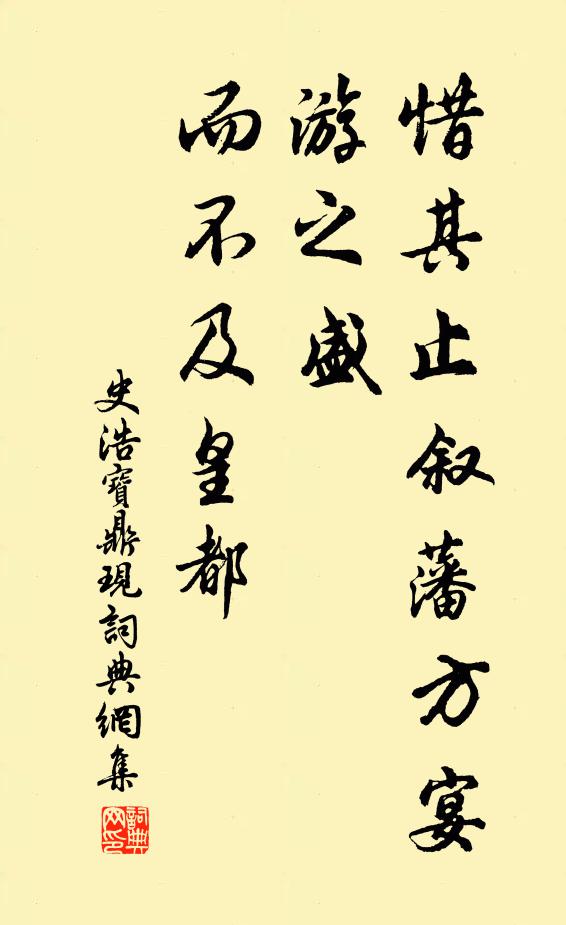 惜其止叙藩方宴
游之盛
而不及皇都
史浩寶鼎現詞典網集
詞典
网印